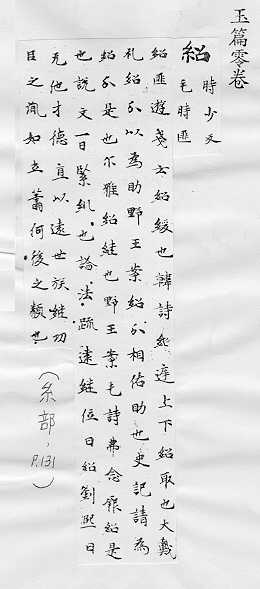 玉篇零卷
紹 時少反 毛時匪
紹匪遊箋云紹緩也韓詩紹遲上下紹取也大戴
礼紹介以為助野王案紹介相佑助也史記請為
紹介是也尓雅紹継也野王案毛詩弗念厥紹是
也說文一曰緊糾也論法疏遠継位曰紹劉熙曰
无他才德直以遠世族継功
臣之流如立蕭何後之類也
（糸部，P.131）